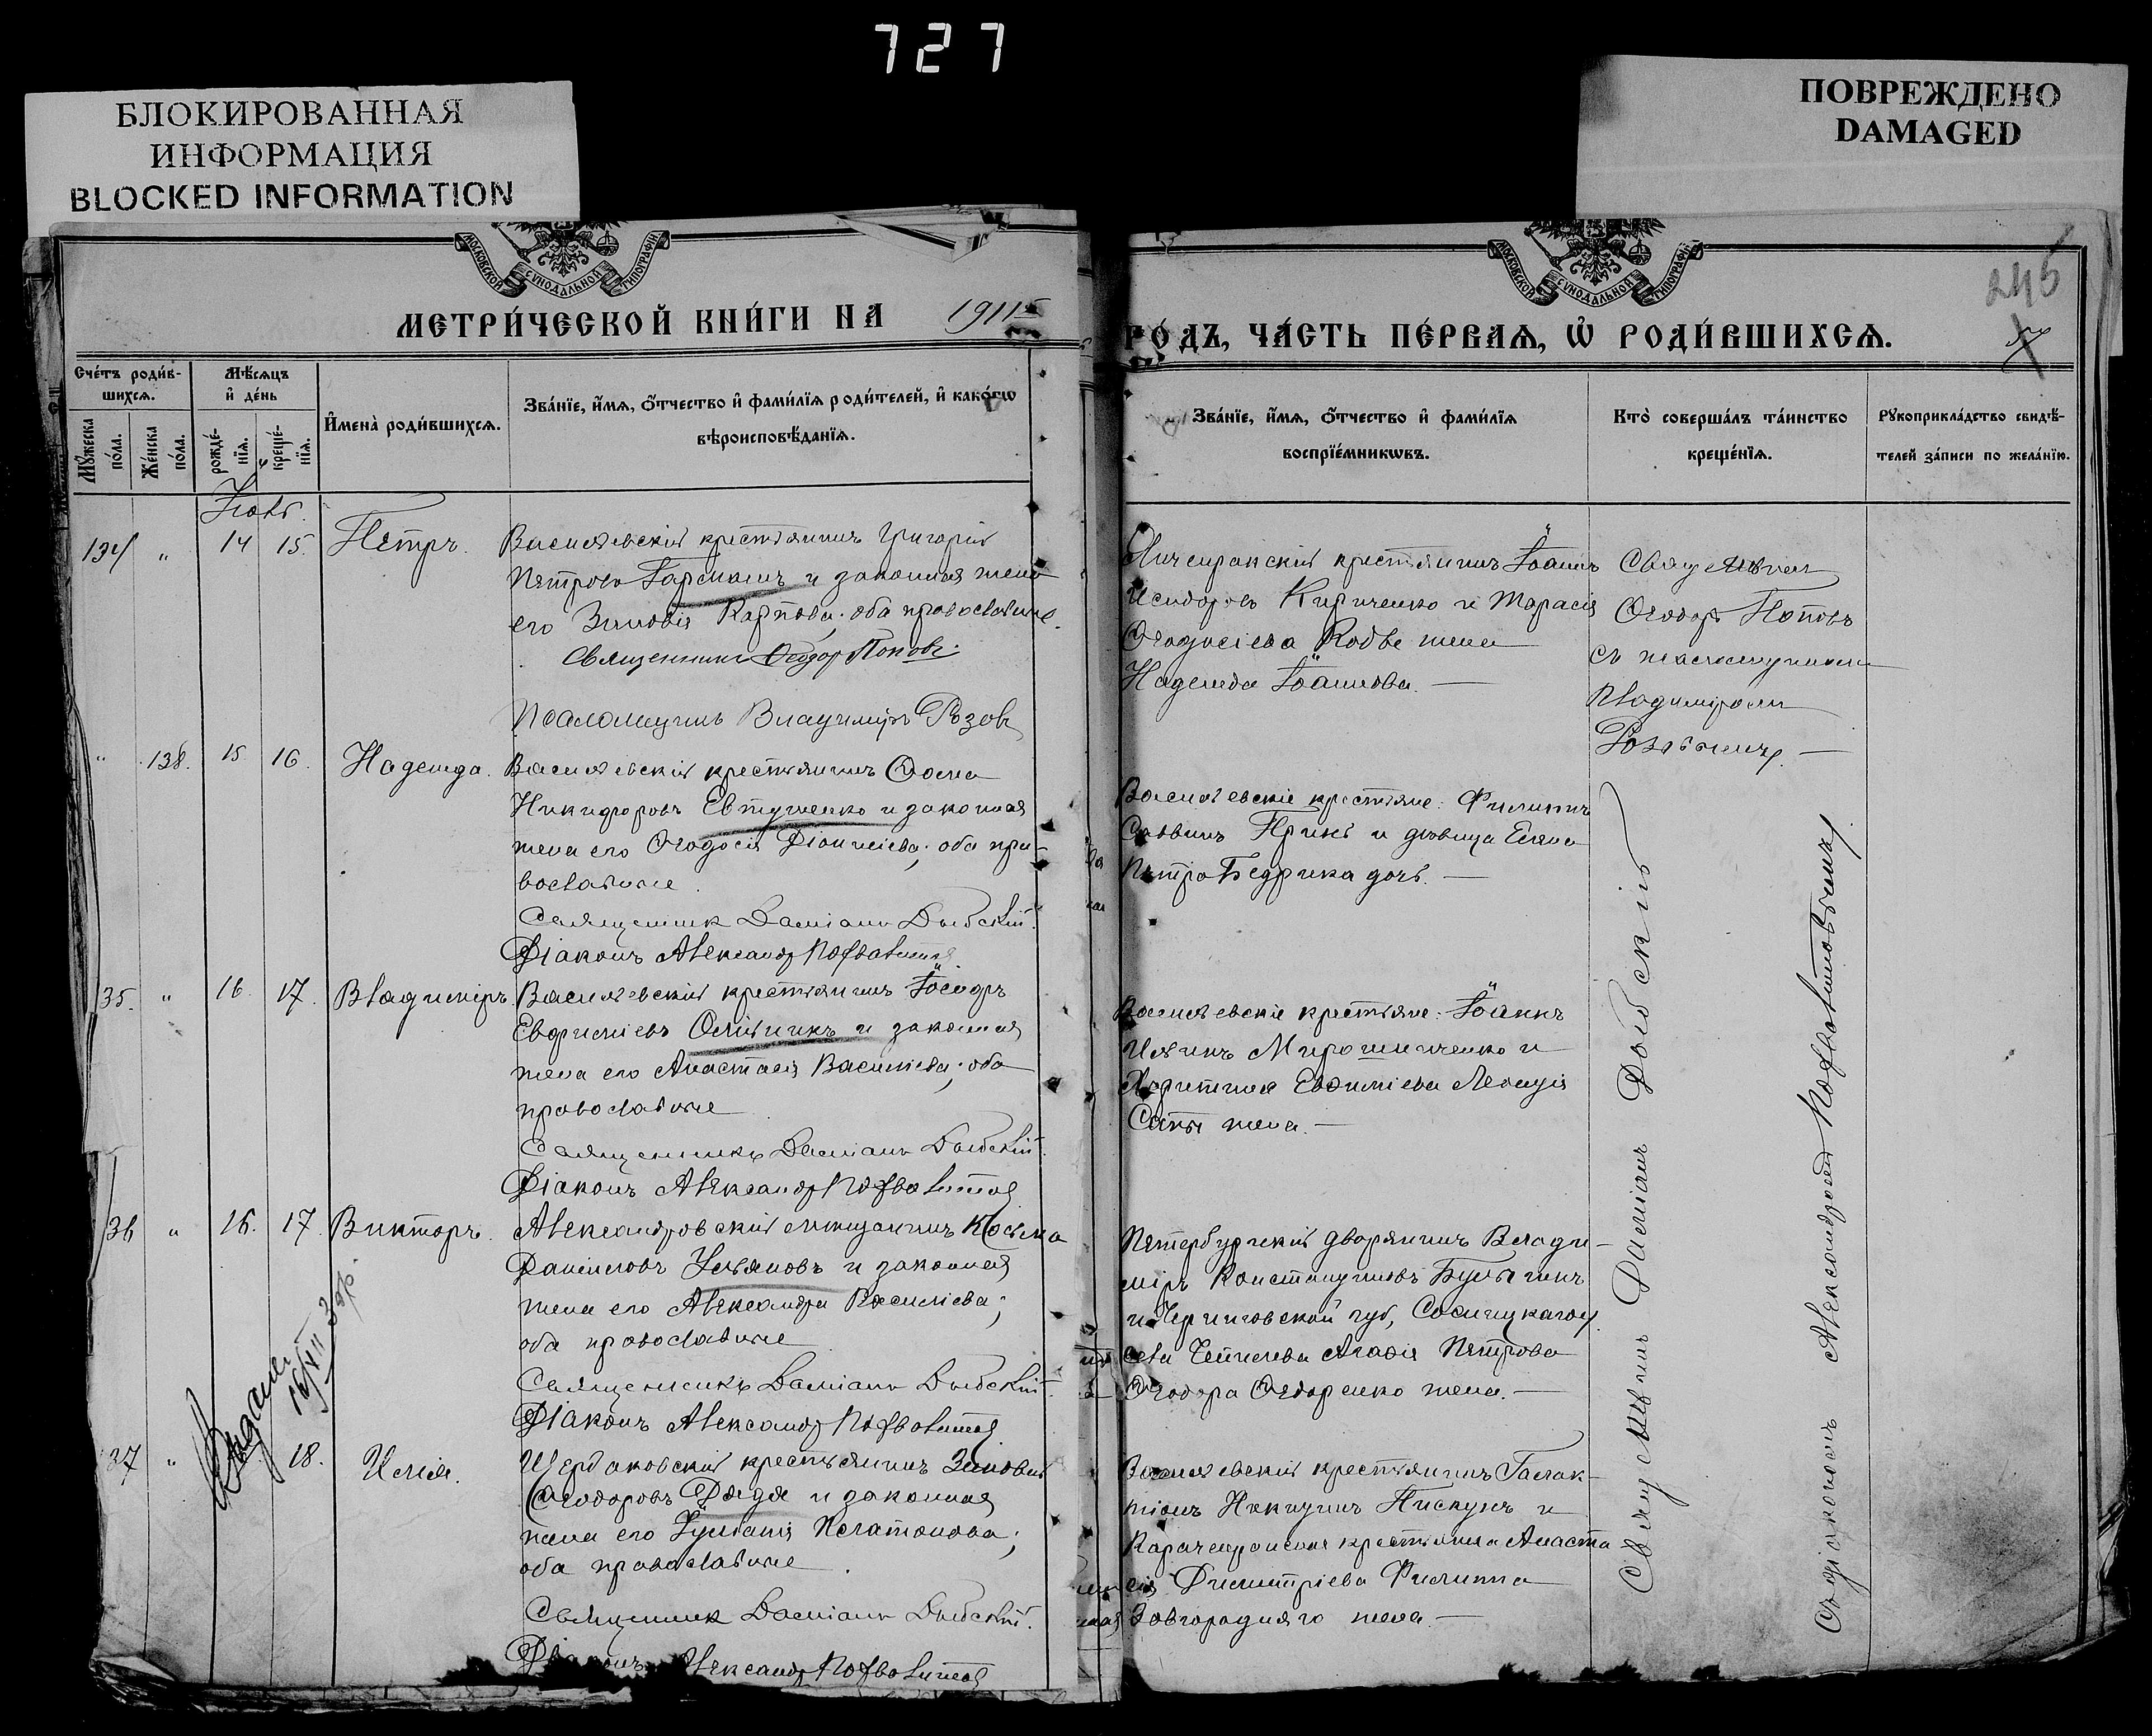 727
БЛОКИРОВАННАЯ
ИНФОРМАЦИЯ
BLOCKED INFORMATION
ПОВРЕЖДЕНО
DAMAGED
МОСКОВСКОЙ СѴНОДАЛЬНОЙ ТИПОГРАФІИ
МОСКОВСКОЙ СѴНОДАЛЬНОЙ ТИПОГРАФІИ
245
МЕТРИ́ЧЕСКОЙ КНИ́ГИ НА 1911
ГО́ДЪ, ЧА́СТЬ ПЕ́РВАѦ, Ѡ҆ РОДИ́ВШИХСѦ.
Сче́тъ роди́в-
шихсѧ.
Мꙋ́жеска
по́ла.
Же́нска
по́ла.
Мѣ́сѧцъ
и҆ де́нь
рожде́-
нїѧ.
креще́-
нїѧ.
И҆мена̀ роди́вшихсѧ.
Зва́нїе, и҆́мѧ, ѻ҆́тчество и҆ фами́лїѧ роди́телей, и҆ како́гѡ
вѣроисповѣ́данїѧ.
Зва́нїе, и҆́мѧ, ѻ҆́тчество и҆ фами́лїѧ
воспрїе́мникѡвъ.
Кто̀ соверша́лъ та́инство
креще́нїѧ.
Рꙋкоприкла́дство свидѣ́-
телей за́писи по жела́нїю.
Нояб.
134 " 14 15. Петръ.
Васильевскій крестьянинъ Григорій
Петровъ Гармашъ и законная жена
его Зиновія Карпова; оба православные.
Священникъ Ѳеодоръ Поповъ.
Псаломщикъ Владиміръ Розовъ
крестьянинъ Іоаннъ
Исидоровъ Кириченко и Тарасія
Ѳеодосіева Кобзе жена
Надежда Іоаннова. —
Священник
Ѳеодоръ Поповъ
съ псаломщикомъ
Владиміромъ
Розовымъ. —
" 138. 15 16. Надежда.
Васильевскій крестьянинъ Ѳома
Никифоровъ Евтушенко и законная
жена его Ѳеодосія Діонисіева; оба пра-
вославные.
Священник Даміанъ Дыбскій.
Діаконъ Александръ
Васильевскіе крестьяне: Филиппъ
Саввинъ и дѣвица Елена
Петра Бедрика дочь. —
35. " 16. 17. Владиміръ.
Васильевскій крестьянинъ Іосифъ
Евфиміевъ и законная
жена его Анастасія Василіева; оба
православные
Священникъ Даміанъ Дыбскій.
Діаконъ Александръ
Васильевскіе крестьяне: Іоаннъ
Ильинъ Мирошниченко и
Харитина Евѳиміева
жена. —
36 " 16. 17. Викторъ.
Александровскій мѣщанинъ Косьма
Даниловъ Ульяновъ и законная
жена его Александра Василіева;
оба православные
Священникъ Даміанъ Дыбскій.
Діаконъ Александръ
Петербургскій дворянинъ Влади-
міръ Константиновъ Булыгинъ
и Черниговской губ, Сосницкаго у.
села Агаѳія Петрова
Ѳеодора Ѳедоренко жена. —
37 " 18. Илія.
Щербаковскій крестьянинъ Зиновій
Ѳеодоровъ Дядя и законная
жена его Іуліанія Платонова;
оба православные.
Священник Даміанъ Дыбскій.
Діаконъ Александръ
Васильевскій крестьянинъ Галак-
тіонъ Никитинъ Пискунъ и
крестьянка Анаста
сія Димитріева Филиппа
Завгородняго жена —
Священникъ Даміанъ Дыбскій
съ діакономъ Александромъ